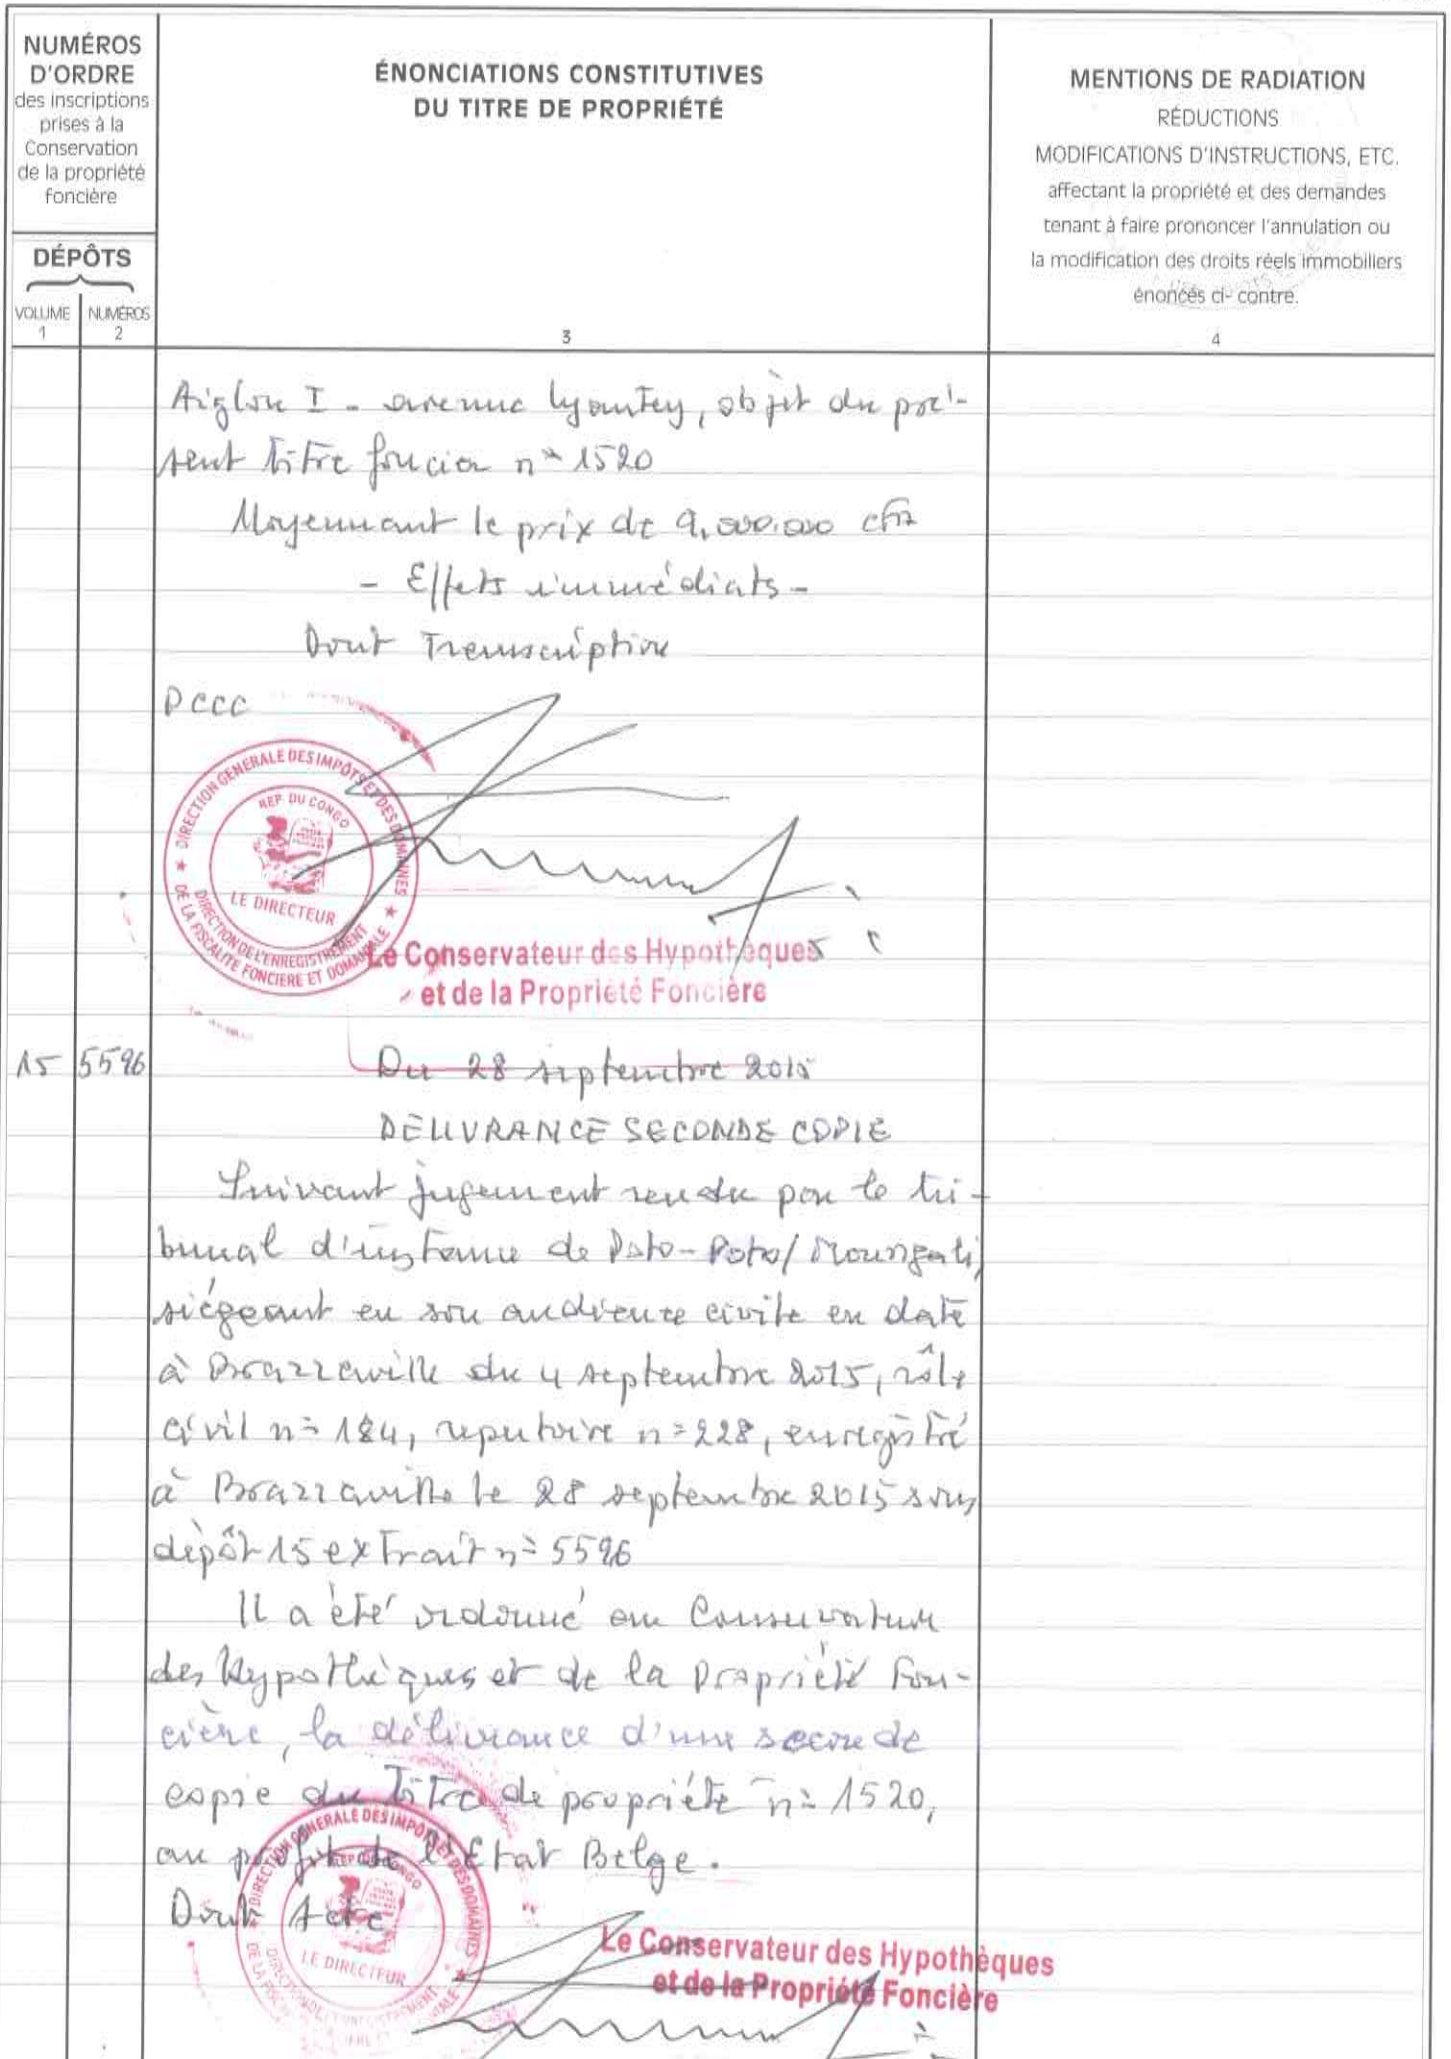 NUMÉROS
D'ORDRE
des inscriptions
prises à la
Conservation
de la propriété
foncière
DÉPÔTS
VOLUME
1
NUMÉROS
2
ÉNONCIATIONS CONSTITUTIVES
DU TITRE DE PROPRIÉTÉ
3
MENTIONS DE RADIATION
RÉDUCTIONS
MODIFICATIONS D'INSTRUCTIONS, ETC.
affectant la propriété et des demandes
tenant à faire prononcer l'annulation ou
la modification des droits réels immobiliers
énoncés ci-contre.
4
Aiglon I - avenue Lyautey, objet du pré-
sent titre foncier n° 1520
Moyennant le prix de 9.000.000 cfa
- Effets immédiats -
Dont Transcription
PCCC
DIRECTION GENERALE DES IMPÔTS ET DES DOMAINES
REP DU CONGO
LE DIRECTEUR
DIRECTION DE L'ENREGISTREMENT
DE LA FISCALITE FONCIERE ET DOMANIALE
Le Conservateur des Hypothèques
et de la Propriété Foncière
15 5596 Du 28 septembre 2015
DELIVRANCE SECONDE COPIE
Suivant jugement rendu par le tri-
bunal d'instance de Poto-Poto/Moungali,
siégeant en son audience civile en date
à Brazzaville du 4 septembre 2015, rôle
civil n° 184, repertoire n° 228, enregistré
à Brazzaville le 28 septembre 2015 sous
dépôt 15 extrait n° 5596
Il a été ordonné au Conservateur
des Hypothèques et de la Propriété Fon-
cière, la délivrance d'une seconde
copie du Titre de propriété n° 1520,
au profit de l'Etat Belge.
Dont Acte
DIRECTION GENERALE DES IMPÔTS ET DES DOMAINES
REP DU CONGO
LE DIRECTEUR
Le Conservateur des Hypothèques
et de la Propriété Foncière